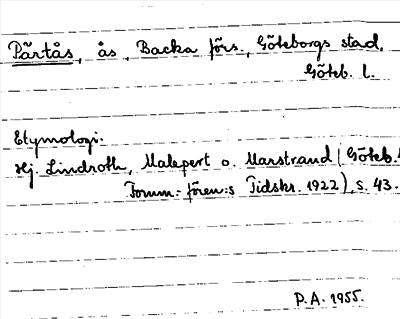 Pärtås, ås, Backa förs., Göteborgs stad.
Göteb. l.
Etymologi.
Hj. Lindroth, Malepert o. Marstrand (Göteb.
Fornm.-fören:s Tidskr. 1922), s. 43.
P.A. 1955.